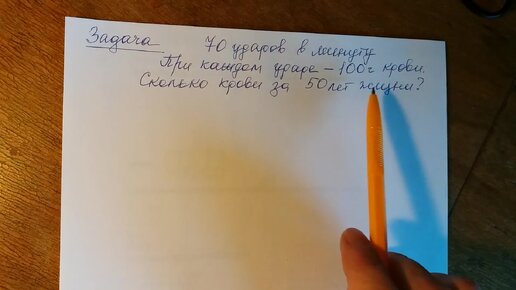 Задача 70 ударов в минуту
При каждом ударе - 100г крови.
Сколько крови за 50 лет жизни?